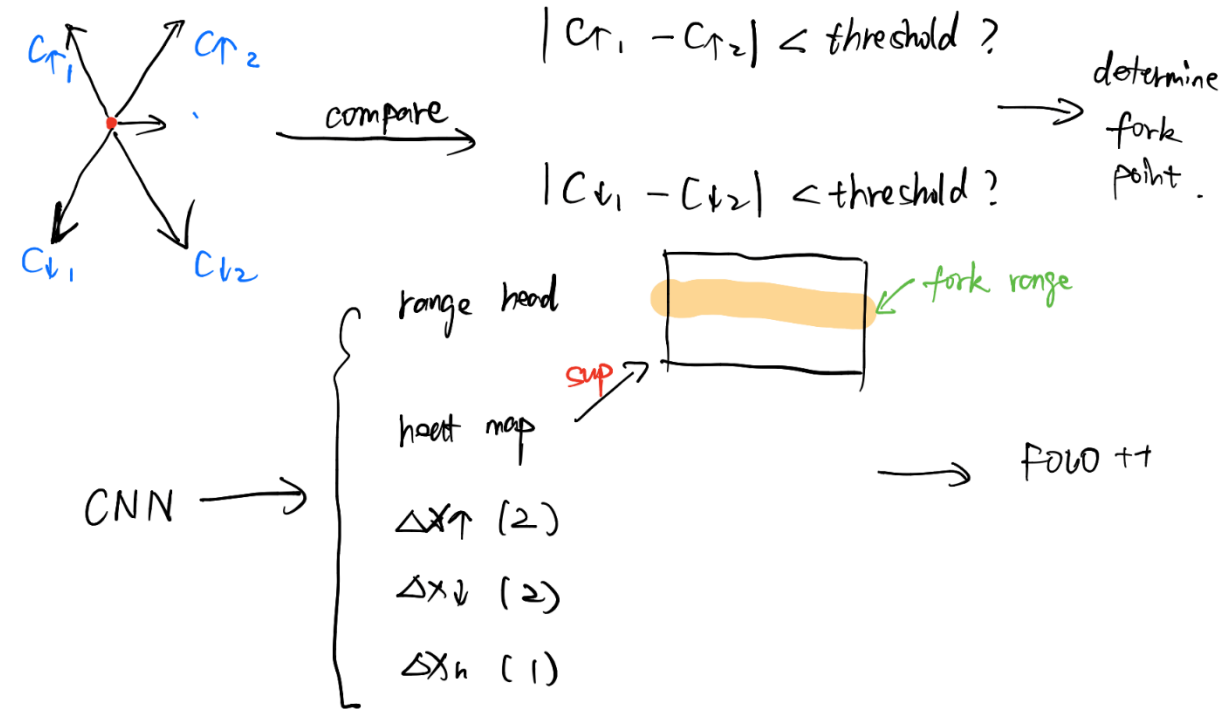 C↑₁
C↑₂
C↓₁
C↓₂
compare
|C↑₁ - C↑₂| < threshold ?
|C↓₁ - C↓₂| < threshold ?
determine
fork
point.
range head
fork range
sup
heat map
CNN
ΔX↑ (2)
ΔX↓ (2)
ΔXh (1)
FOLO ++